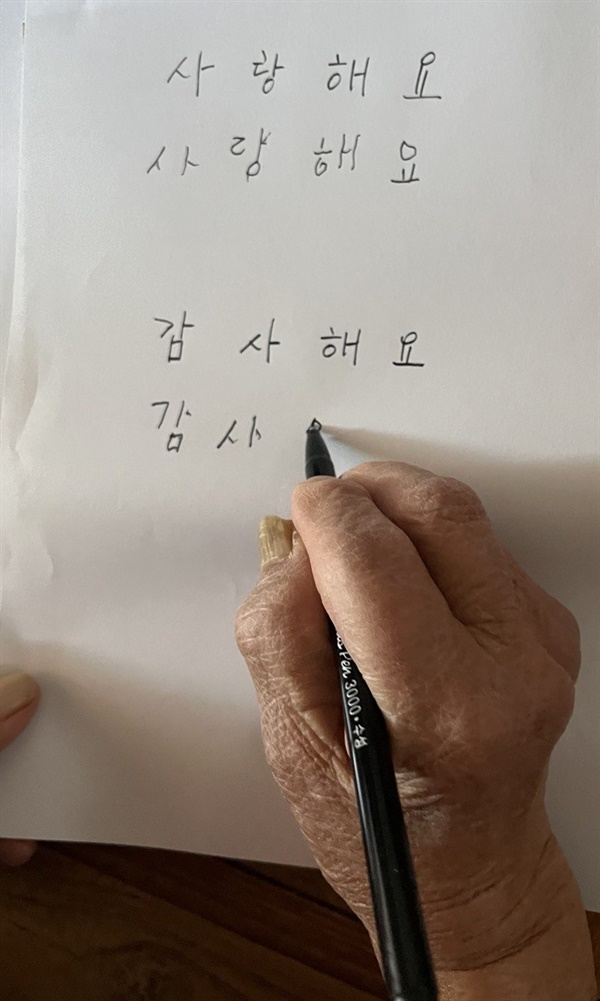 사 랑 해 요
사 랑 해 요
감 사 해 요
감 사
Pen 3000 • 수성